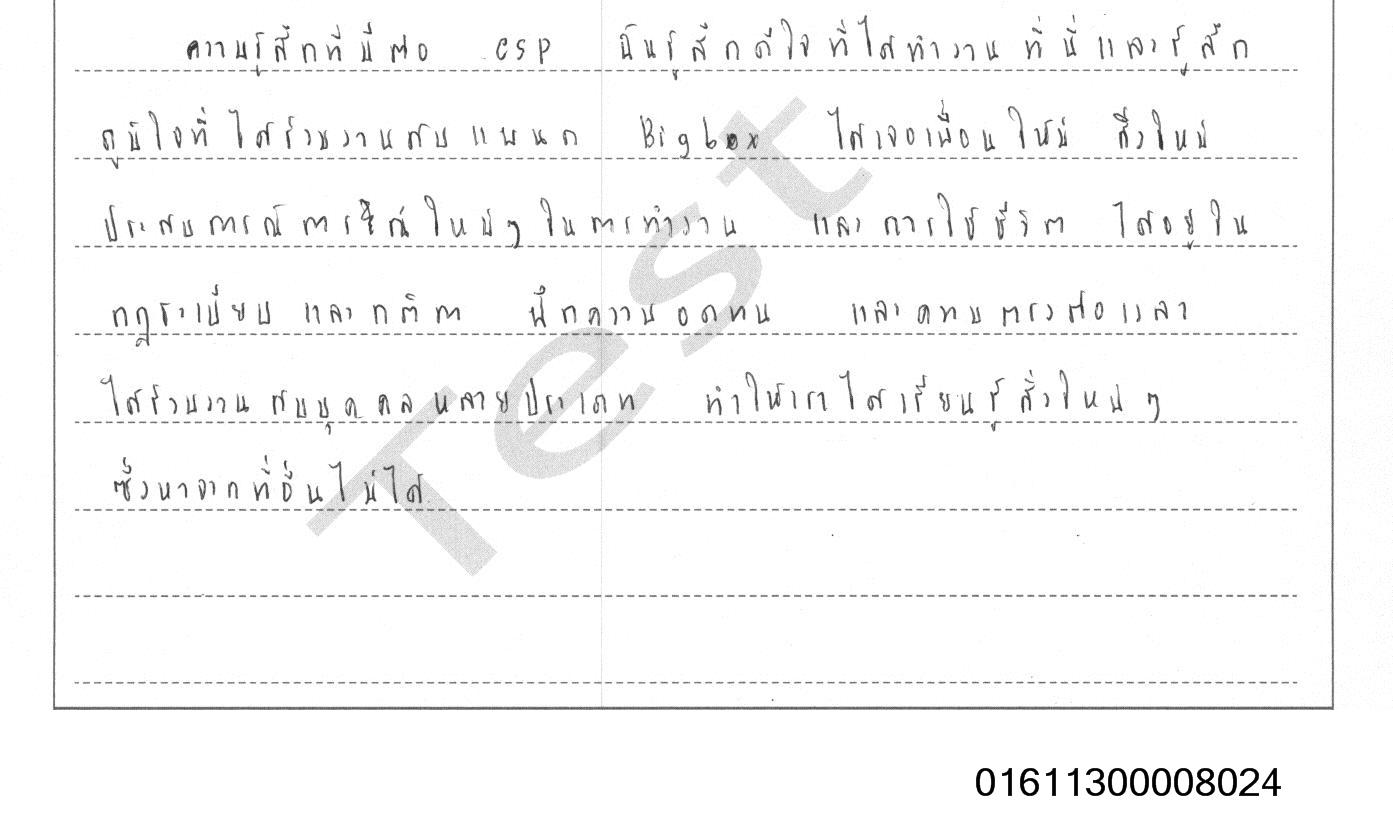 ความรู้สึกที่มีต่อ CSP ฉันรู้สึกดีใจที่ได้ทำงาน ที่นี่และรู้สึก
ภูมิใจที่ได้ร่วมงานกับแผนก Big box ได้เจอเพื่อนใหม่ สิ่งใหม่
ประสบการณ์การณ์ใหม่ๆ ในการทำงาน และการใช้ชีวิต ได้อยู่ใน
กฎระเบียบ และกติกา ฝึกความอดทน และความตรงต่อเวลา
ได้ร่วมงานกับบุคคลหลายประเภท ทำให้เราได้เรียนรู้สิ่งใหม่ๆ
ซึ่งหาจากที่อื่นไม่ได้
Test
01611300008024